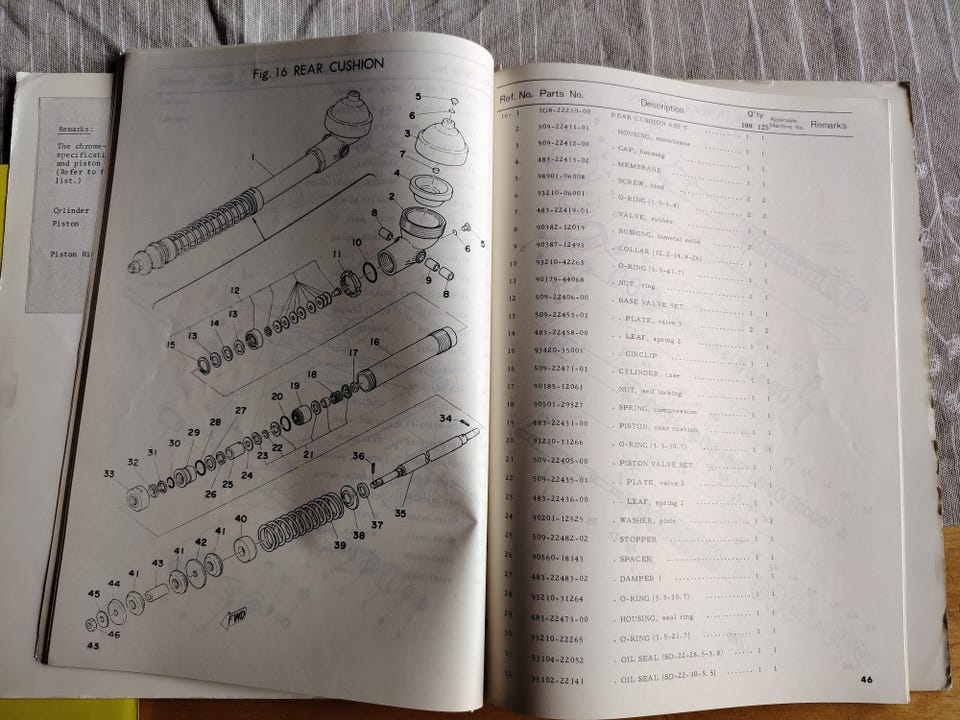 Remarks:
The chrome-
specificati
and piston
(Refer to t
list.)
Cylinder
Piston
Piston Ri
Fig. 16 REAR CUSHION
5
6
3
7
4
2
8
5
6
9
8
10
11
12
13
14
13
15
1
16
17
18
19
20
21
22
23
24
25
26
27
28
29
30
31
32
33
34
35
36
37
38
39
40
41
42
41
43
41
44
45
46
45
FWD
Ref. No. Parts No. Description Q'ty 100 125 Applicable Machine No. Remarks
16- 1 1G8-22210-00 REAR CUSHION ASS'Y 1 1
2 509-22411-01 . HOUSING, membrane 1 1
3 509-22412-00 . CAP, housing 1 1
4 483-22413-02 . MEMBRANE 1 1
5 98901-06008 . SCREW, bind 2 2
6 93210-06001 . O-RING 2 2
7 483-22419-01 . VALVE, rubber 1 1
8 90382-12019 . BUSHING, bimetal solid 2
9 90387-12493 . COLLAR (12.2-14.8-26) 1 1
10 93210-42263 . O-RING (3.5-41.7) 1 1
11 90179-44068 . NUT, ring 1 1
12 509-22406-00 . BASE VALVE SET 1 1
13 509-22453-01 . . PLATE, valve 3 2 2
14 483-22458-00 . . LEAF, spring 2 1 1
15 93420-35003 . . CIRCLIP 1 1
16 509-22471-01 . CYLINDER, case 1 1
17 90185-12061 . NUT, self locking 1 1
18 90501-29327 . SPRING, compression 1 1
19 483-22431-00 . PISTON, rear cushion 1 1
20 93210-31266 . O-RING (3.5-30.7) 1 1
21 509-22405-00 . PISTON VALVE SET 1 1
22 509-22435-01 . . PLATE, valve 2 1 1
23 483-22436-00 . . LEAF, spring 1 1 1
24 90201-12525 . WASHER, plate 1 1
25 509-22482-02 . STOPPER 1 1
26 90560-18143 . SPACER 1 1
27 483-22483-02 . DAMPER 1 1 1
28 93210-31264 . O-RING (3.5-30.7) 1 1
29 483-22473-00 . HOUSING, seal ring 1 1
30 93210-22265 . O-RING (3.5-21.7) 1 1
31 93104-22052 . OIL SEAL (SO-22-28.5-3.8) 1 1
32 93102-22141 . OIL SEAL (SD-22-30-5.5) 1 1
46